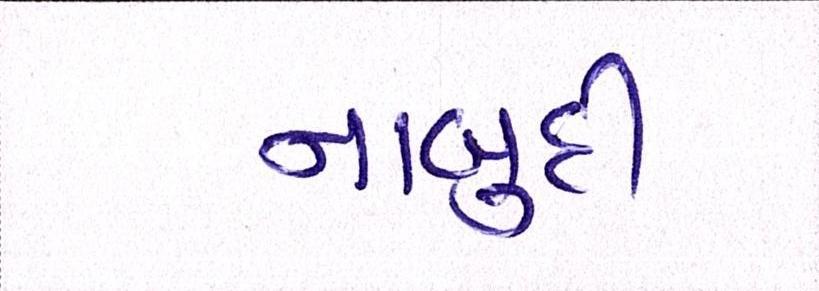 નાબુદી